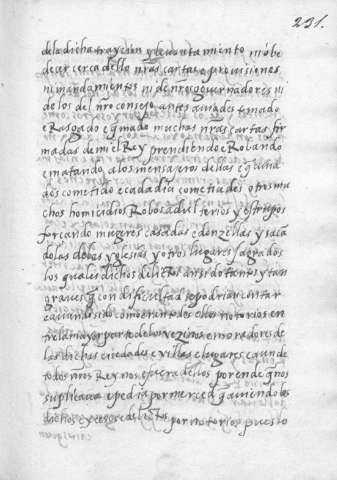 231.
de la dicha trayçion y levantamiento ni obe
deçer cerca dello nras cartas e provisiones
ni mandamientos ni de nros governadores ni
de los del nro consejo antes aviades tomado
e Rasgado e qmado muchas nras cartas fir
madas de mi el Rey prendiendo e Robando
e matando a los mensajeros dellas e q avia
des cometido e cada dia cometiades otros mu
chos homeçidios Robos adulterios y estrupos
forçando mugeres casadas e donzellas y sacan
dolas de las yglesias y otros lugares sagrados
los quales dichos delictos ansi dotantos y tan
graves q con dificultad se podrian contar
e aviendo sido como eran todos ellos notorios en
tre la mayor parte de los vezinos e moradores de
las dichas çiudades e villas e lugares e aun de
todos nros Reynos e fuera dellos por ende q nos
suplicava e pedia por merced q aviendo los
dichos exçesos e delictos por notorios puesto